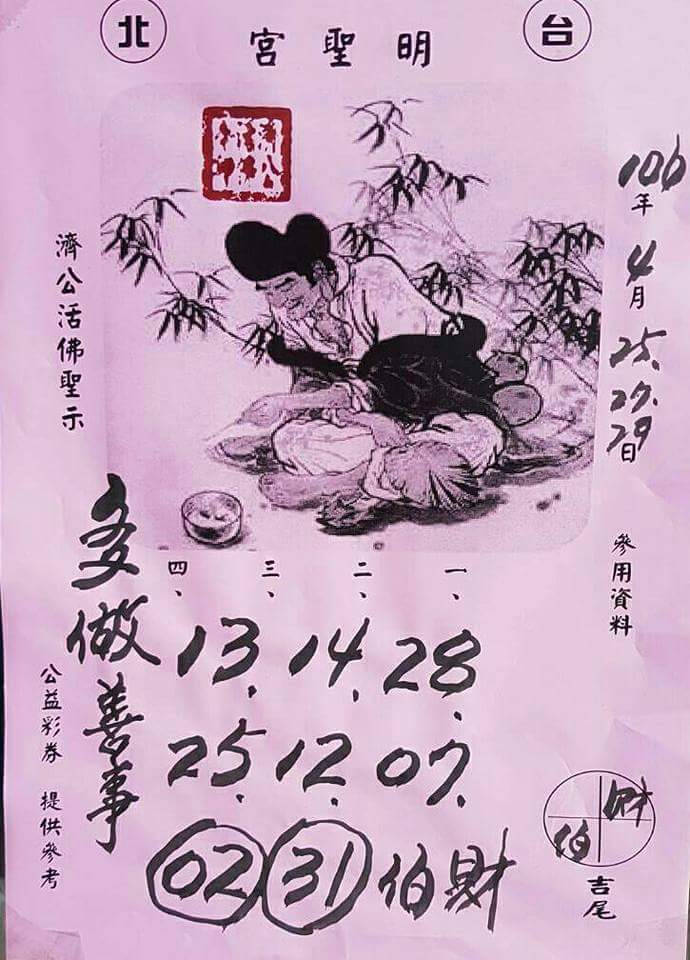 台
明聖宮
北
106年4月25.27.29日
參用資料
一、
二、
三、
四、
13. 14. 28.
25. 12. 07.
02 31 伯財
財
伯
吉尾
濟公活佛聖示
多做善事
公益彩券 提供參考